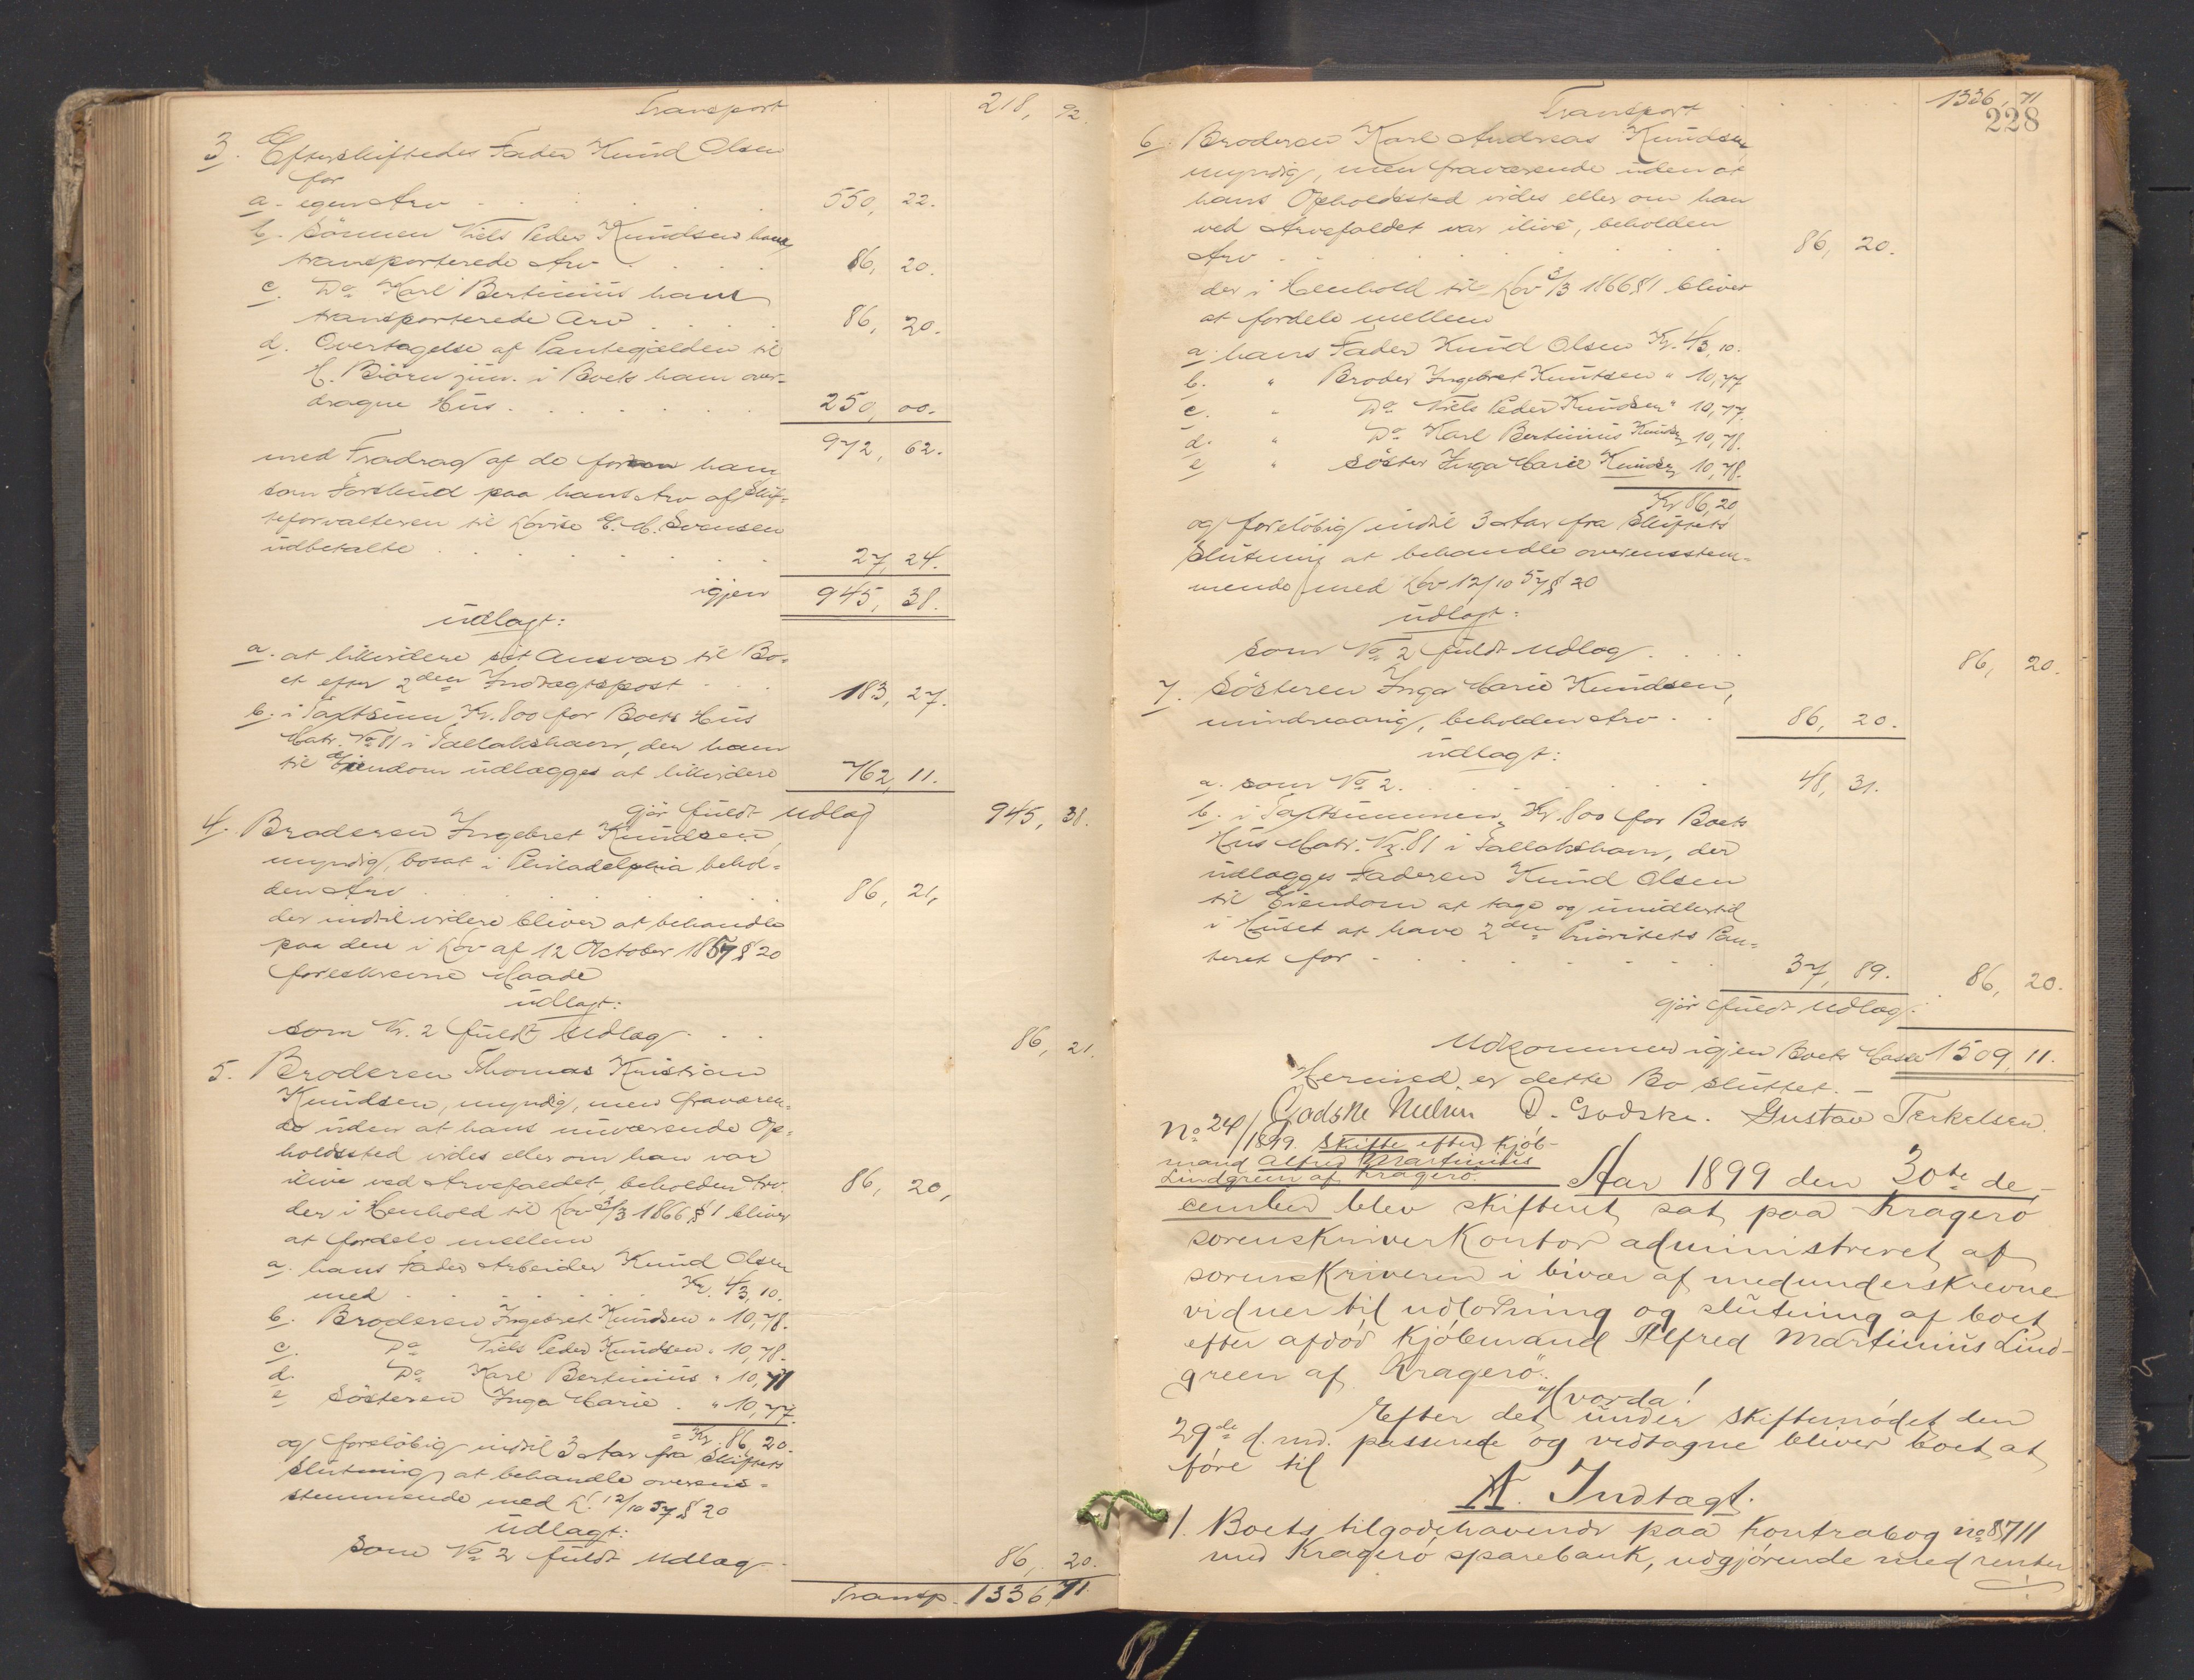 Transport 218, 92.
3. Efterskiftedes Fader Knud Olsen
for
a. egen Arv 550, 22.
b. Sønnen Niels Peder Knudsens ham
transporterede Arv 86, 20.
c. Do Karl Bertinius ham
transporterede Arv 86, 20.
d. Overtagelse af Pantegjælden til
H. Biørn jun. i Boets ham over-
dragne Hus 250, 00.
972, 62.
med Fradrag af de for ham
som Forskud paa hans Arv af Skif-
teforvalteren til Lovise E. M. Svensen
udbetalte 27, 24.
igjen 945, 38.
udlagt:
a. at likvidere sit Ansvar til Bo-
et efter 2den Indtægtspost 183, 27.
b. i Taxtsum Kr. 800 for Boets Hus
Matr. No 81 i Tallakshavn, der ham
til Eiendom udlægges at likvidere 762, 11.
gjør fuldt Udlæg 945, 38.
4. Broderen Ingebret Knudsen,
myndig, bosat i Philadelphia behol-
den Arv 86, 21,
der indtil videre bliver at behandle
paa den i Lov af 12 October 1857 § 20
foreskrevne Maade
udlagt:
som Nr. 2 fuldt Udlæg 86, 21.
5. Broderen Thomas Kristian
Knudsen, myndig, men fraværen-
de uden at hans nuværende Op-
holdssted vides eller om han var
ilive ved Arvefaldet, beholden Arv 86, 20,
der i Henhold til Lov 3/3 1866 § 1 bliver
at fordele mellem
a. hans Fader Arbeider Knud Olsen
med Kr. 43, 10.
b. Broderen Ingebret Knudsen " 10, 78.
c. Do Niels Peder Knudsen " 10, 78.
d. Do Karl Bertinius " 10, 77
e Søsteren Inga Marie " 10, 77.
= Kr. 86, 20.
og foreløbig indtil 3 Aar fra Skiftets
Slutning at behandle overens-
stemmende med L. 12/10 57 § 20
udlagt:
som No 2 fuldt Udlæg 86, 20.
Transp. 1336, 71.
Transport 1336, 71
228
6. Broderen Karl Andreas Knudsen,
myndig, men fraværende uden at
hans Opholdssted vides eller om han
ved Arvefaldet var ilive, beholden
Arv 86, 20.
der i Henhold til Lov 3/3 1866 § 1 bliver
at fordele mellem
a. hans Fader Knud Olsen Kr. 43, 10.
b. " Broder Ingebret Knutsen " 10, 77
c. " Do Niels Peder Knudsen " 10, 77.
d. " Do Karl Bertinius Knudsen 10, 78.
e " Søster Inga Marie Knudsen 10, 78.
Kr 86, 20
og foreløbig indtil 3 Aar fra Skiftets
Slutning at behandle overensstem-
mende med Lov 12/10 57 § 20
udlagt:
som No 2 fuldt Udlæg 86, 20.
7. Søsteren Inga Marie Knudsen,
mindreaarig, beholden Arv 86, 20.
udlagt:
a. som No 2. 48, 31.
b. i Taxtsummen Kr. 800 for Boets
Hus Matr. Nr. 81 i Tallakshavn, der
udlægges Faderen Knud Olsen
til Eiendom at tage og imidlertid
i Huset at have 2den Prioritets Pan-
teret for 37, 89. 86, 20.
gjør fuldt Udlæg.
Udkommer igjen Boets Masse 1509, 11.
Hermed er dette Bo sluttet. –
Godske Nielsen D. Godske. Gustav Terkelsen.
No 24/1899. Skifte efter Kjøb-
mand Alfred Martinius
Lindgreen af Kragerø.
Aar 1899 den 30te de-
cember blev skifteret sat paa Kragerø
sorenskriverkontor administreret af
sorenskriveren i bivær af medunderskrevne
vidner til udlodning og slutning af boet
efter afdød Kjøbmand Alfred Martinius Lind-
green af Kragerø.
Hvorda!
Efter det under skiftemødet den
29de d. md. passerede og vedtagne bliver boet at
føre til
A. Indtægt.
1. Boets tilgodehavende paa Kontrabog no 8711
med Kragerø sparebank, udgjørende med renter